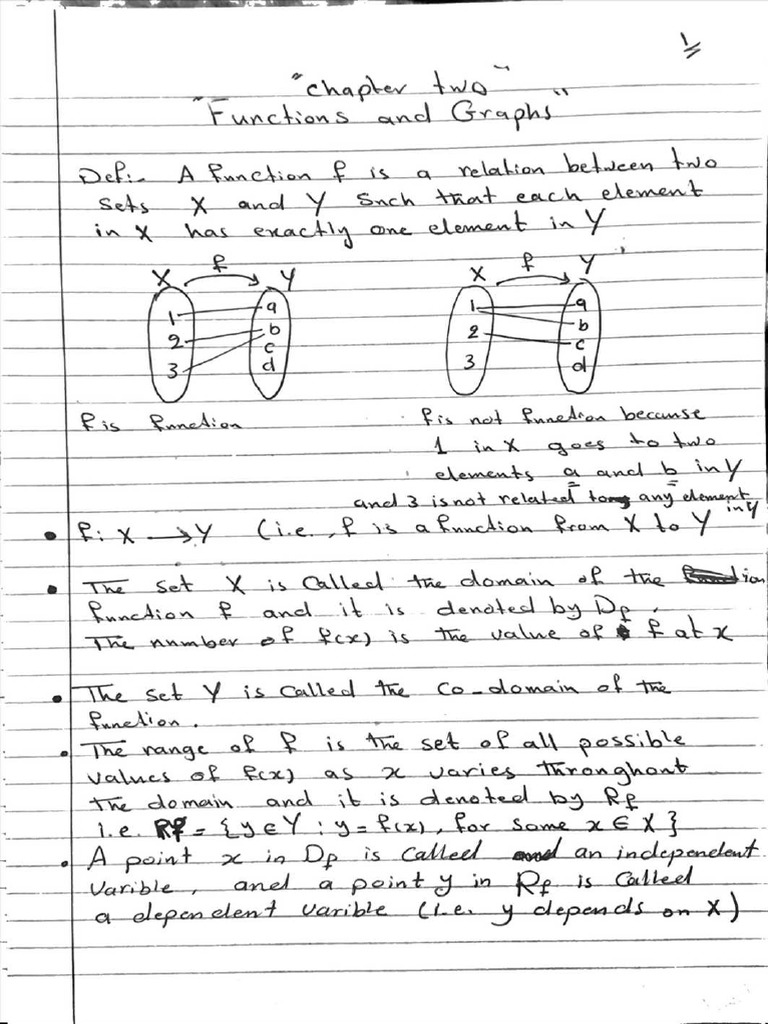 1
"chapter two"
"Functions and Graphs"
Def:- A function f is a relation between two
sets X and Y such that each element
in X has exactly one element in Y
X f Y
1 a
2 b
3 c
d
X f Y
1 a
2 b
3 c
d
f is function
f is not function because
1 in X goes to two
elements a and b in Y
and 3 is not related to any element
in Y
• f: X → Y (i.e., f is a function from X to Y
• The set X is called the domain of the
function f and it is denoted by Df.
The number of f(x) is the value of f at x
• The set Y is called the co-domain of the
function.
• The range of f is the set of all possible
values of f(x) as x varies throughout
the domain and it is denoted by Rf
i.e. Rf = {y ∈ Y : y = f(x), for some x ∈ X}
• A point x in Df is called an independent
varible, and a point y in Rf is called
a dependent varible (i.e. y depends on X)